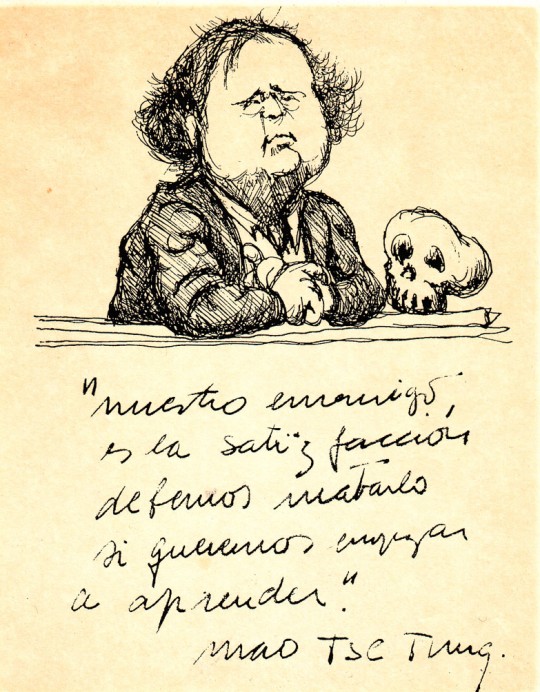 "nuestro enemigo
es la satizfacción
debemos matarlo
si queremos empezar
a aprender."
mao Tse Tung.